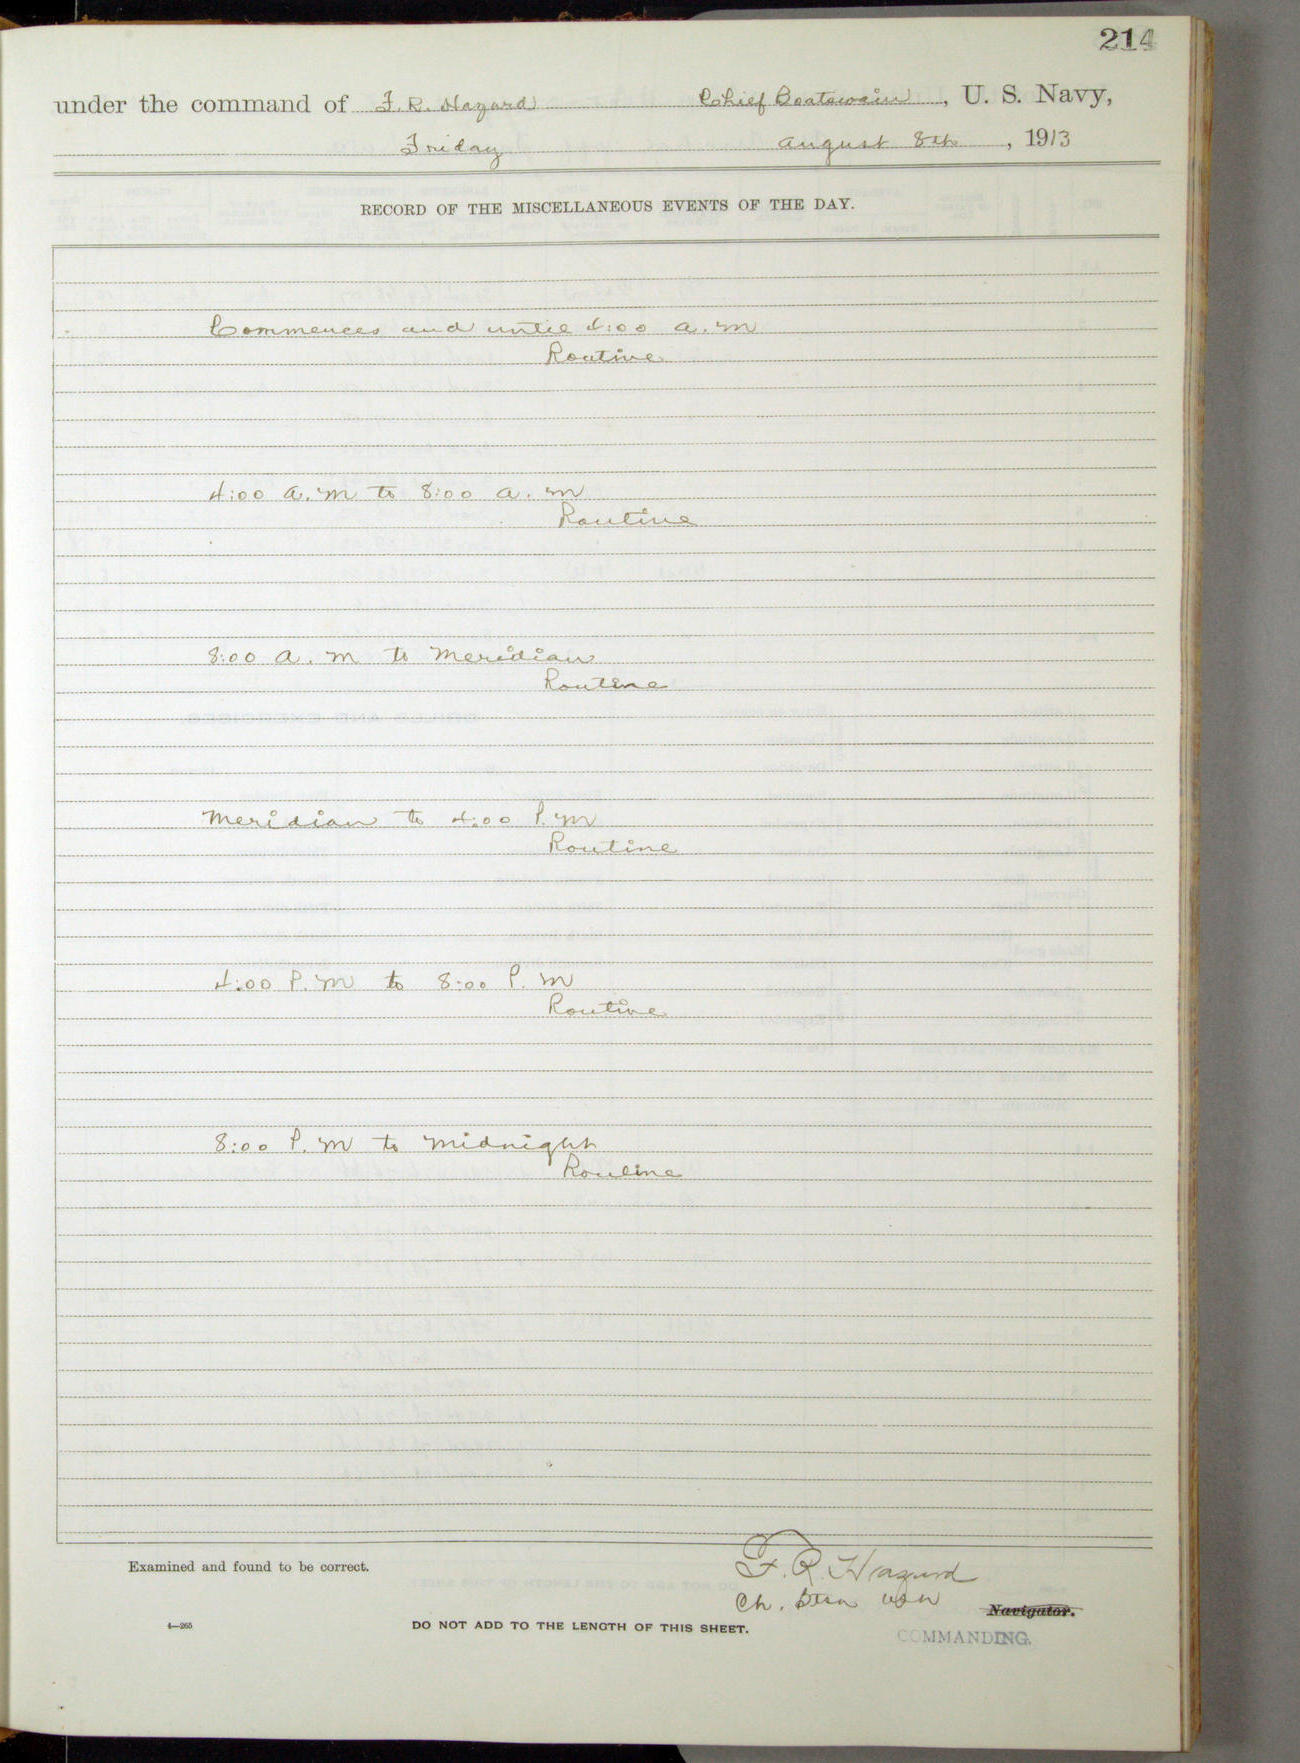 214
under the command of F. R. Hazard Chief Boatswain, U. S. Navy,
Friday August 8th, 1913
RECORD OF THE MISCELLANEOUS EVENTS OF THE DAY.
Commences and until 4:00 a.m
Routine
4:00 a.m to 8:00 a.m
Routine
8:00 a.m to Meridian
Routine
Meridian to 4:00 P.M
Routine
4:00 P.M to 8:00 P.M
Routine
8:00 P.M to Midnight
Routine
Examined and found to be correct.
F. R. Hazard
Ch. Btsn USN
Navigator.
4—265
DO NOT ADD TO THE LENGTH OF THIS SHEET.
COMMANDING.